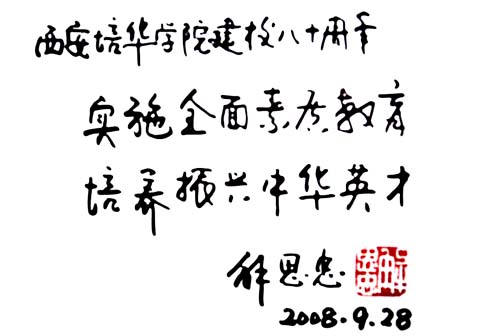 西安培华学院建校八十周年
实施全面素质教育
培养振兴中华英才
解思忠
2008.9.28